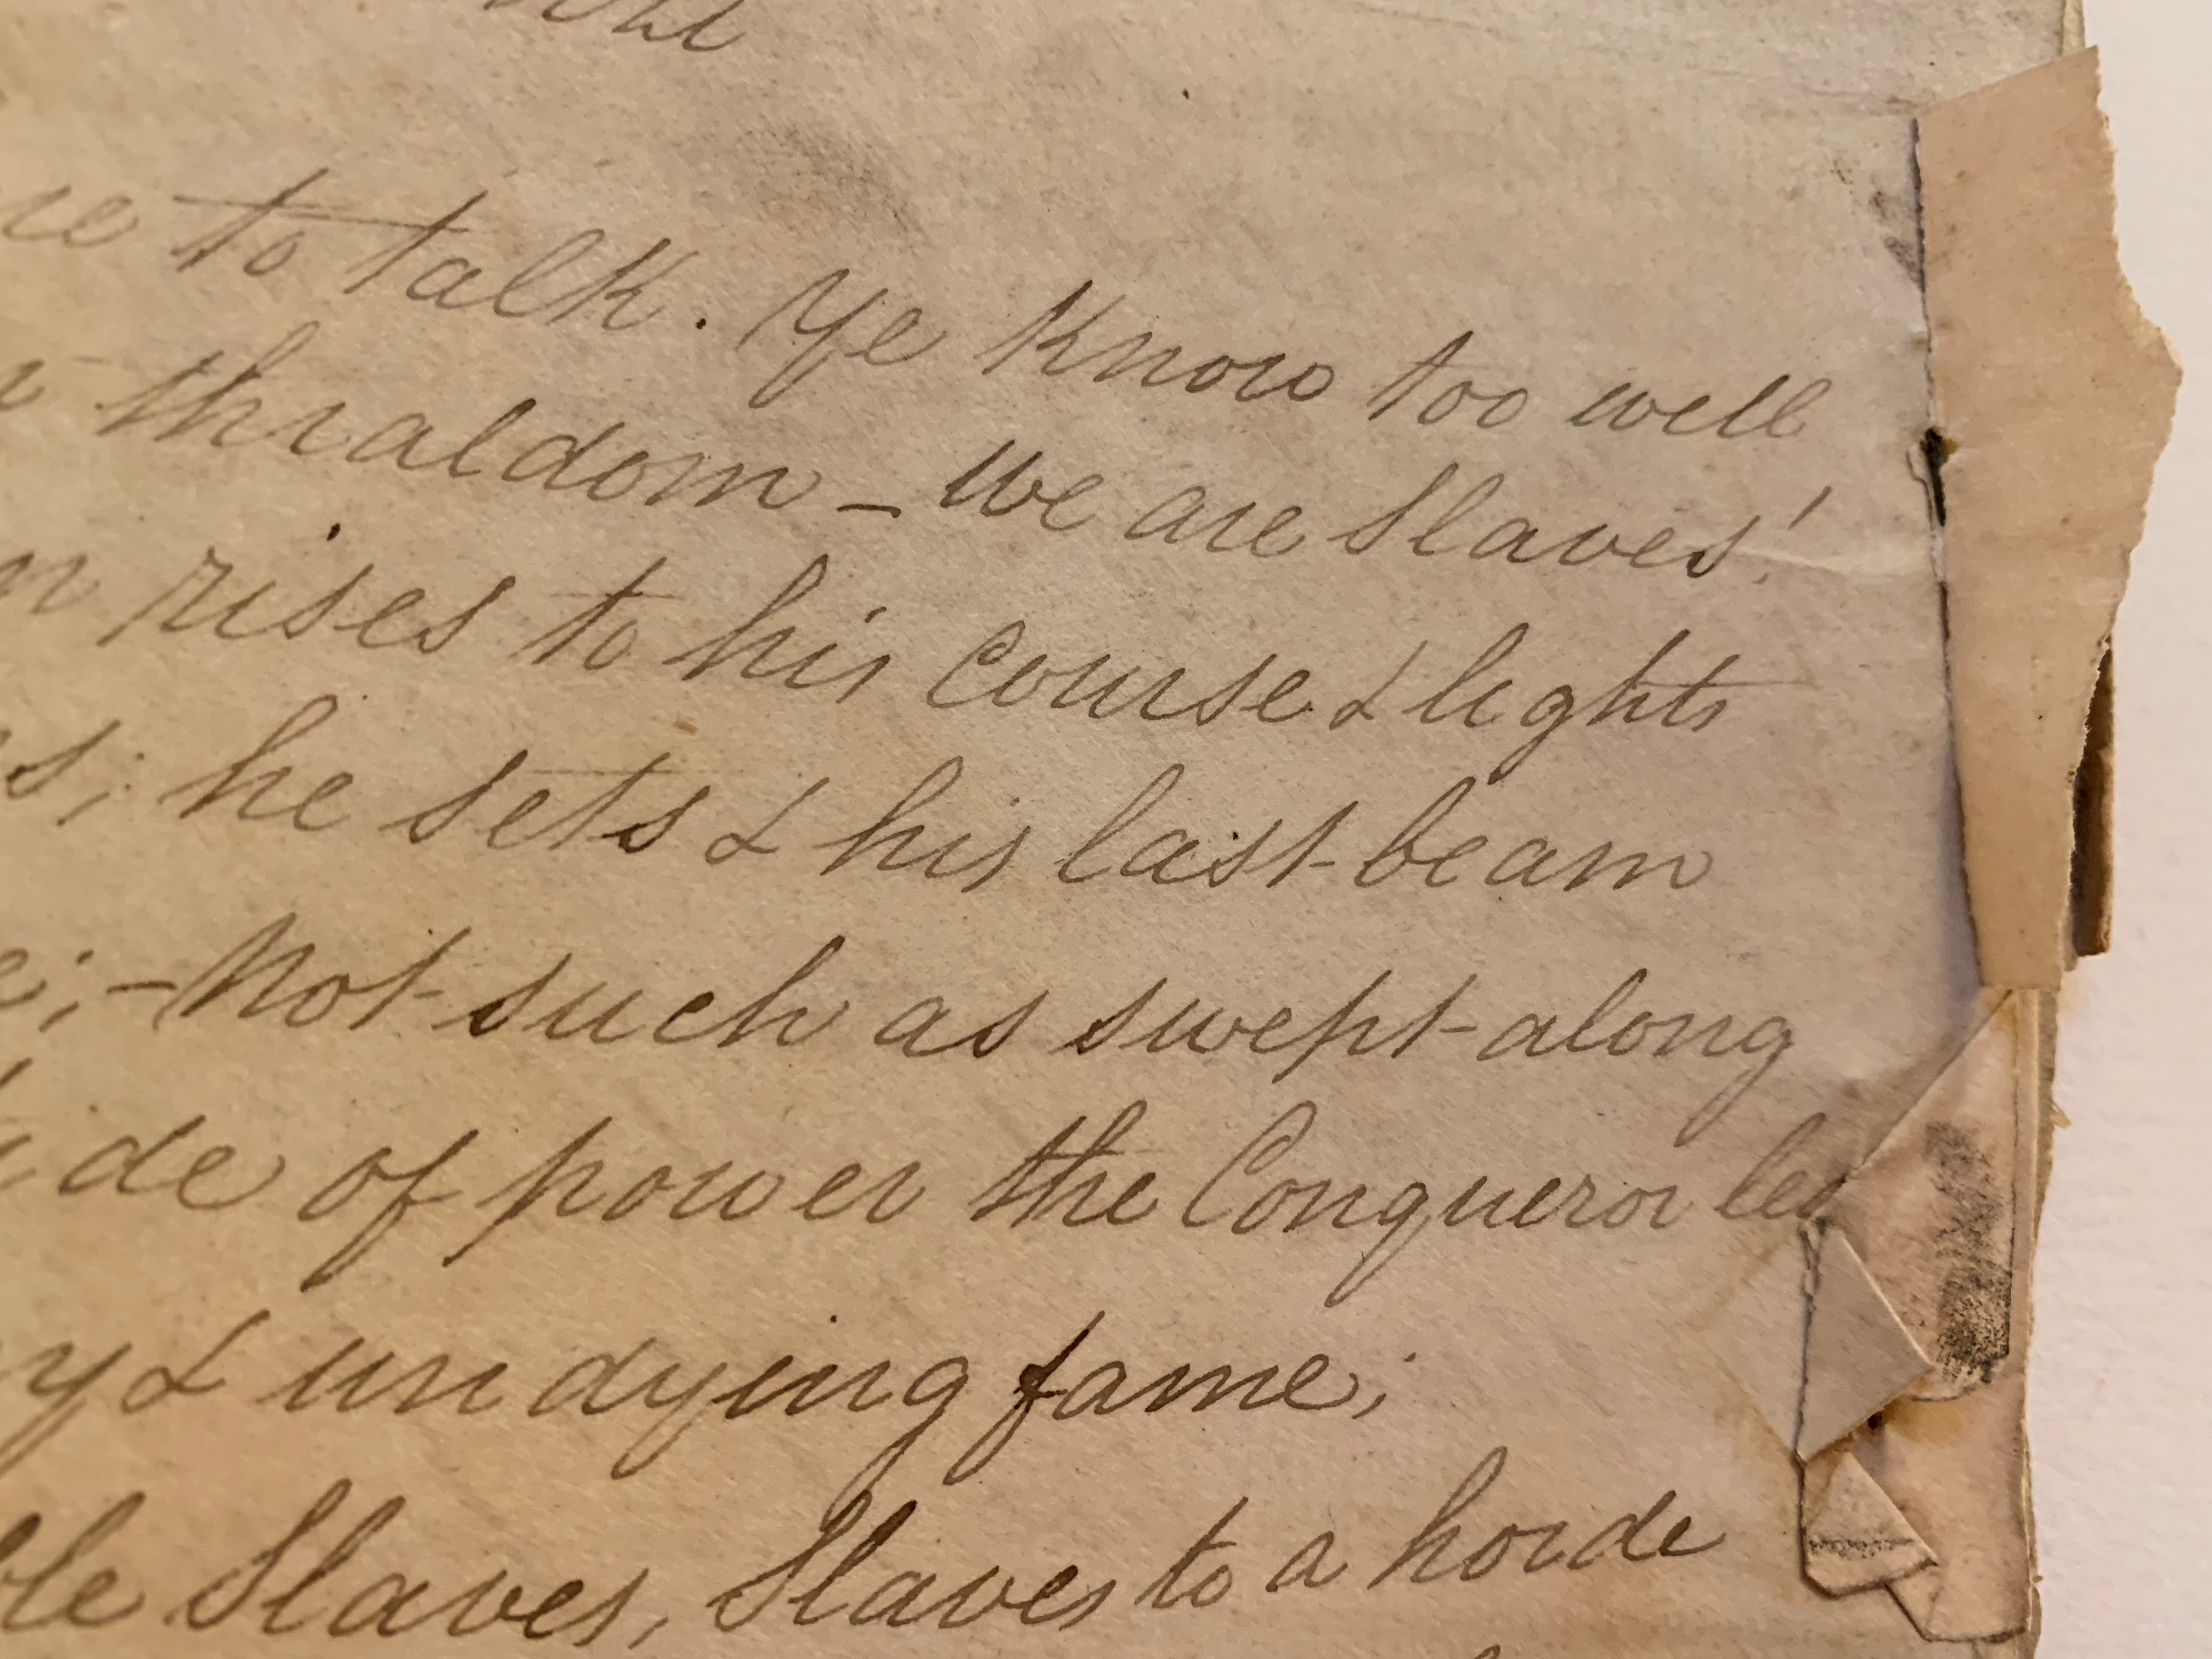 to talk. Ye know too well
thraldom – We are Slaves!
rises to his course & lights
he sets & his last beam
– Not such as swept along
of power the Conqueror led
& undying fame;
Slaves, Slaves to a horde